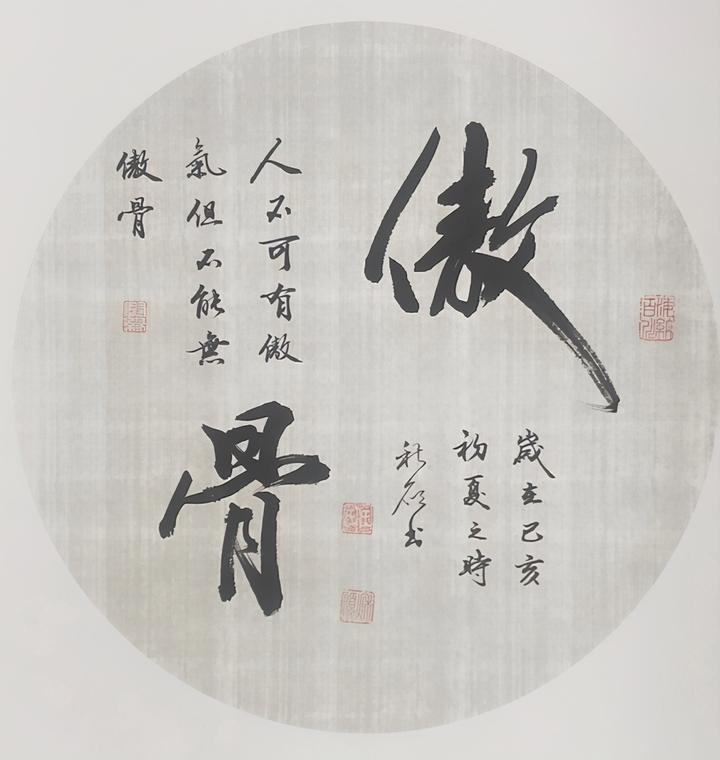 傲
骨
人不可有傲
氣但不能無
傲骨
歲在己亥
初夏之時
秋顧书